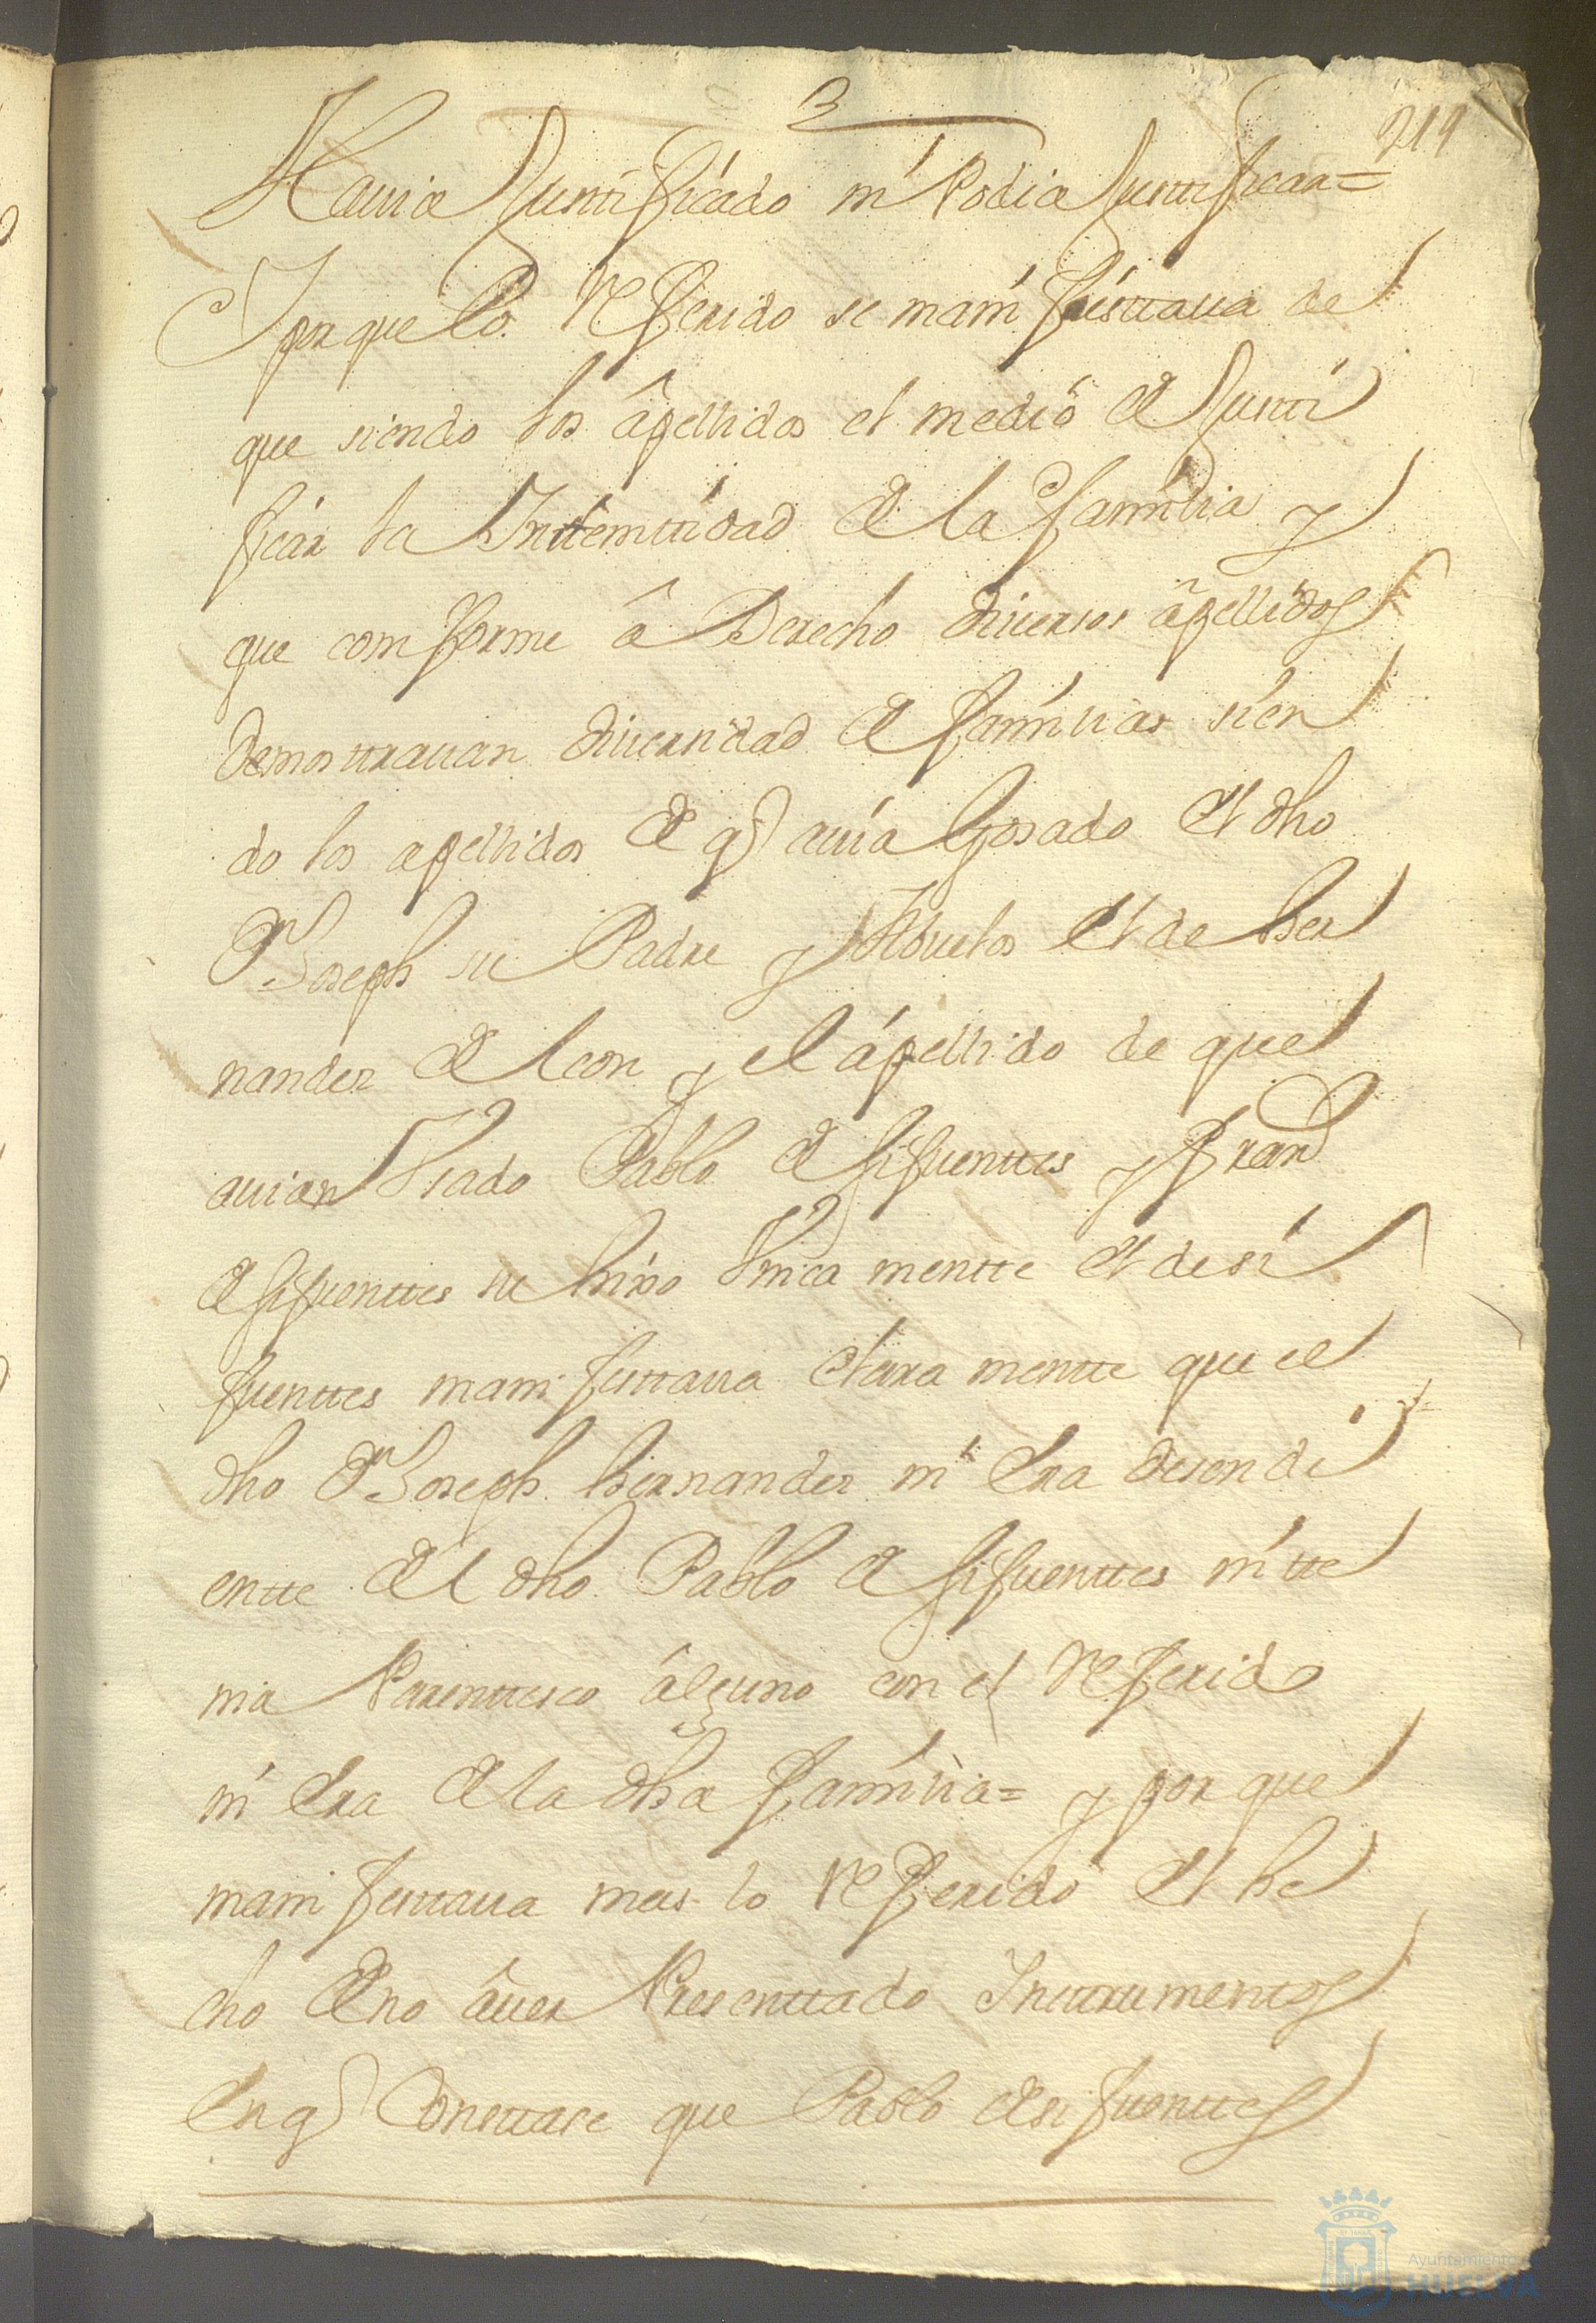 3
219
Hauia Justificado ni Podia Justificar=
Y porque lo Referido se manifesttaua de
que siendo los âpellidos el medio de Justi
ficar la Indtemttidad de la familia y
que comforme â Derecho diuersos âpellidos
demosttrauan diuersidad de familias sien
do los apellidos de q auia Gosado el dho
Dn Joseph su Padre y Abuelos el de her
nandez de leon y el ápellido de que
auian Vsado Pablo de sifuenttes y fran
de sifuenttes su hixo Vnica mentte el de si
fuenttes manifesttaua clara mentte que el
dho Dn Joseph hernandez ni Era desendi
entte de el dho Pablo de sifuenttes ni tte
nia Parenttesco âlguno con el Referido
ni Era de la dha familia= y por que
manifesttaua mas lo Referido el he
cho de no âuer Presenttado Insttrumentos
En q Consttase que Pablo de sifuenttes
Ayuntamiento
HUELVA